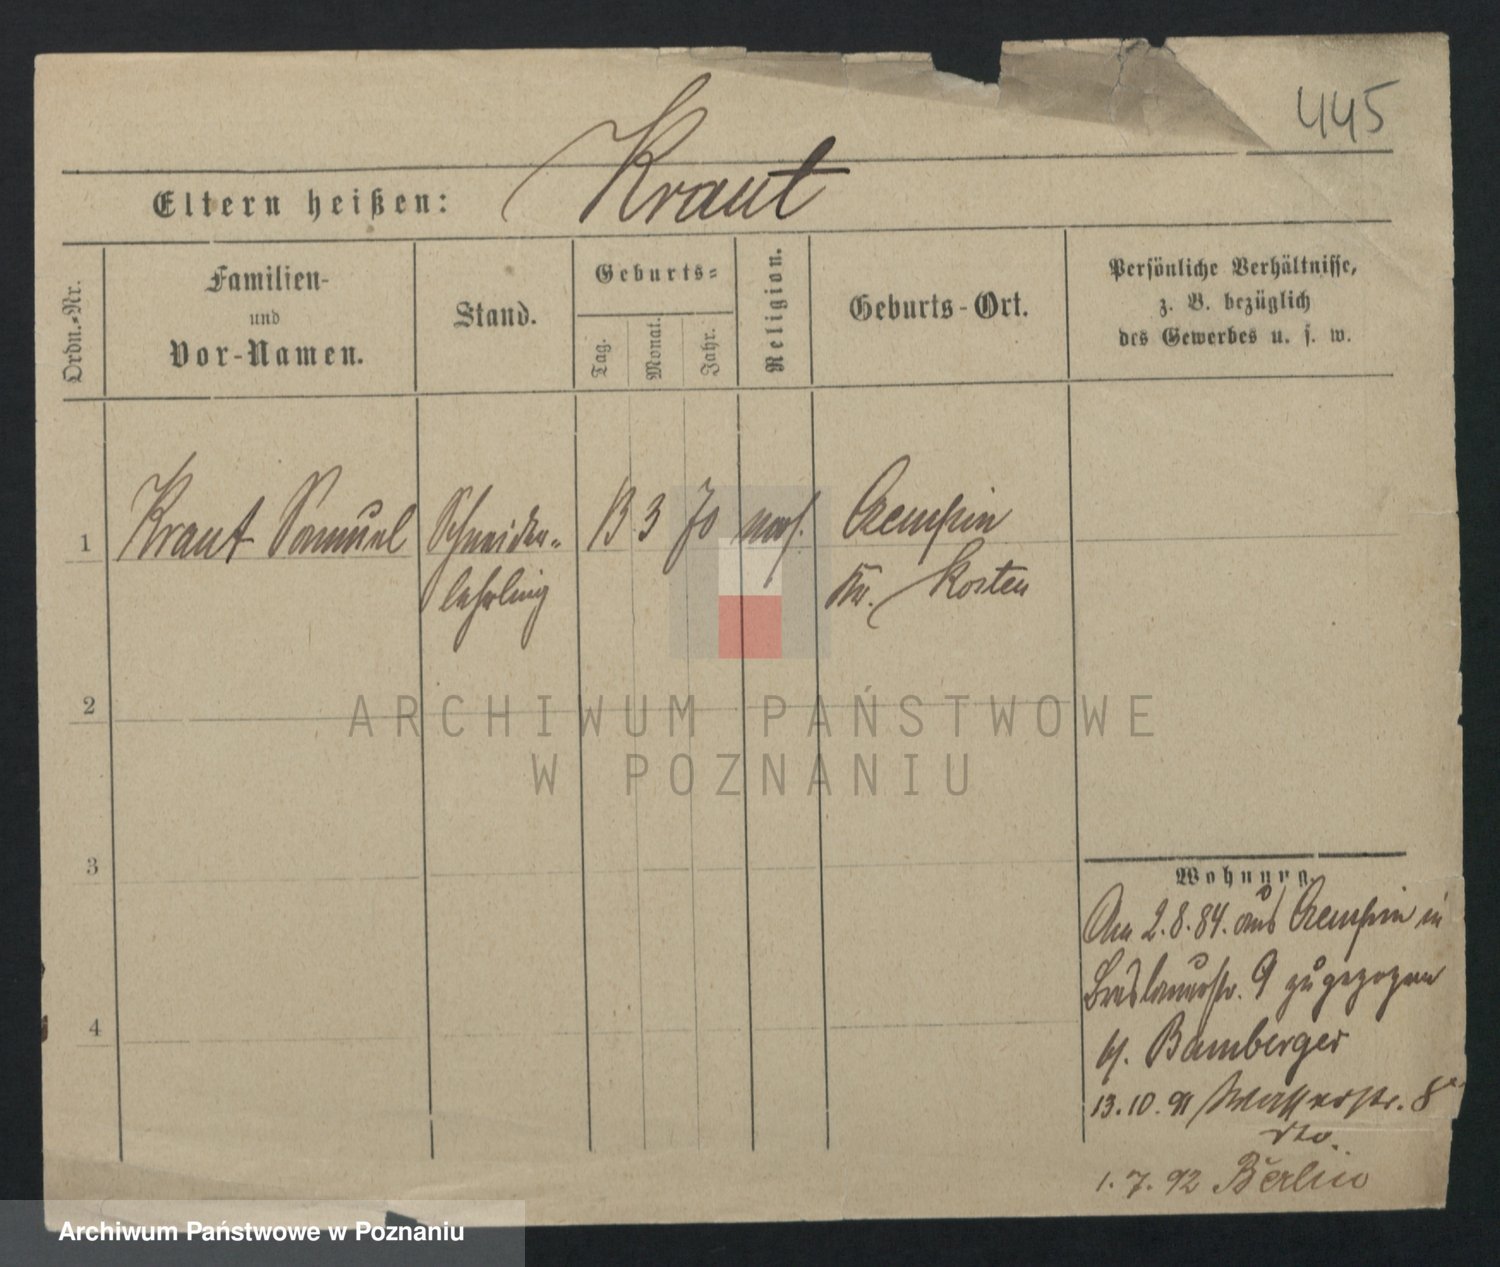 445
Eltern heißen: Kraut
Ordn.-Nr.
Familien-
und
Vor-Namen.
Stand.
Geburts-
Tag.
Monat.
Jahr.
Religion.
Geburts-Ort.
Persönliche Verhältnisse,
z. B. bezüglich
des Gewerbes u. s. w.
1 Kraut Samuel Schneider- 13 3 70 mos. Czempin
lehrling Kr. Kosten
2
ARCHIWUM PAŃSTWOWE
W POZNANIU
3
Wohnung.
Am 2.8.84. aus Czempin in
Breslauerstr. 9 zugezogen
b/. Bamberger
13.10.91 Wasserstr. 8
dto.
4
1.7.92 Berlin
Archiwum Państwowe w Poznaniu